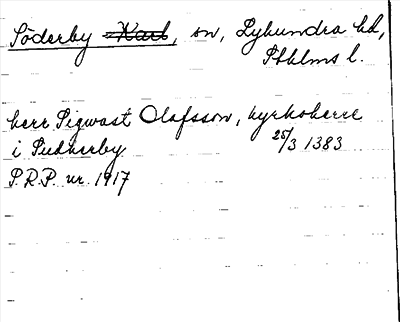 Söderby Karl, sn, Lyhundra hd,
Sthlms l.
herr Sigwast Olafsson, kyrkoherre
i Sudherby 25/3 1383
S.R.P. nr. 1917